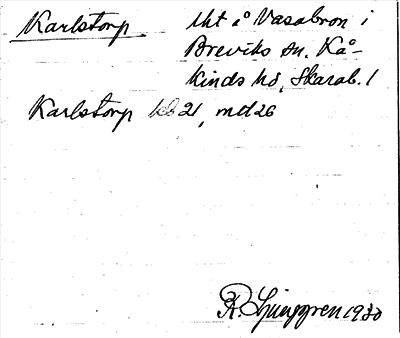 Karlstorp tht å Vasabron i
Breviks sn. Kå-
kinds hd, Skarab. l
Karlstorp kb 21, md 26
R. Ljunggren 1930